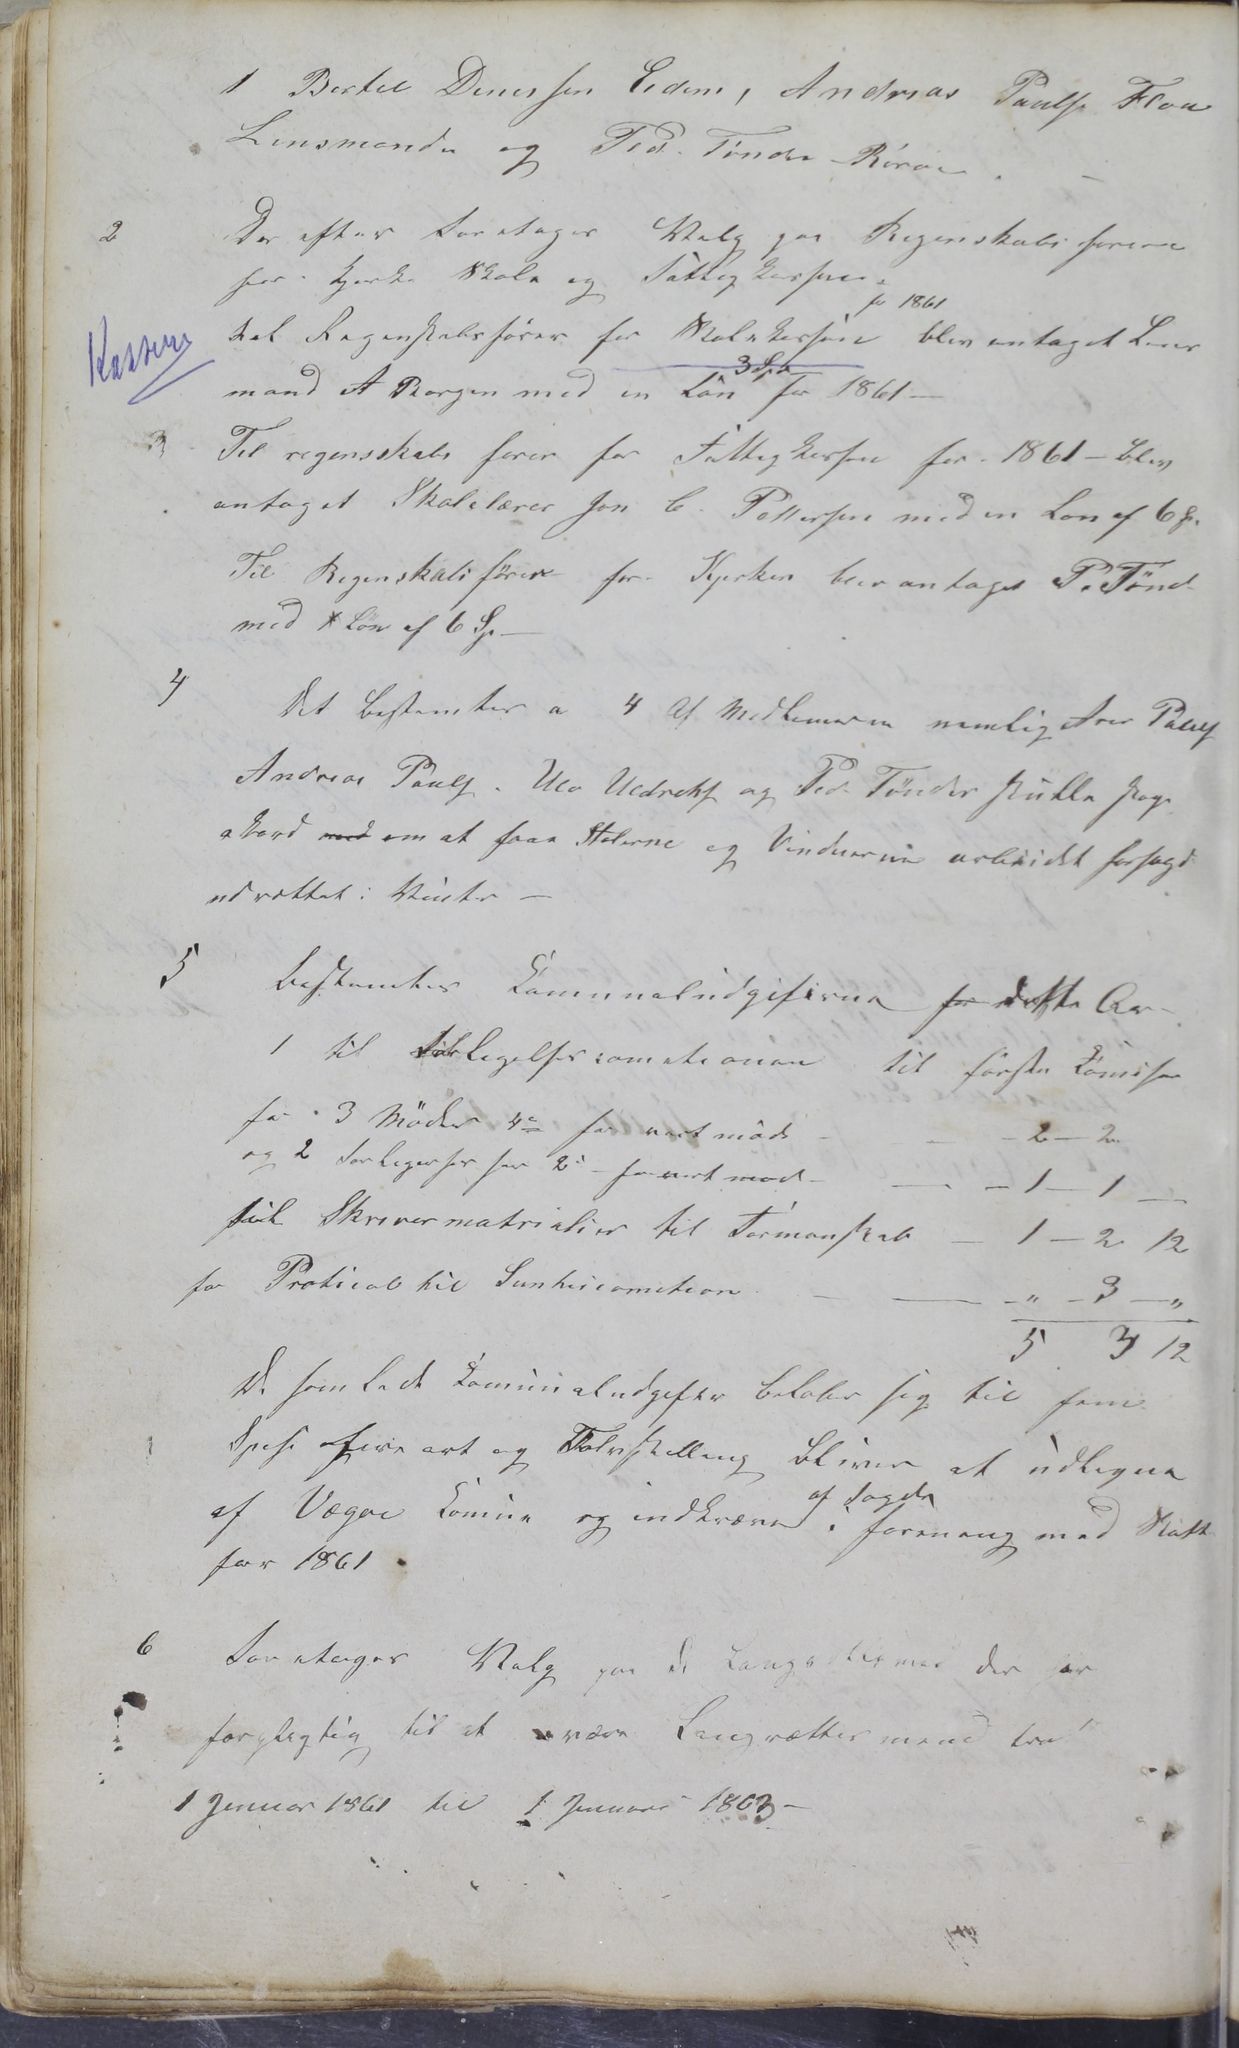 1 Bertel Denessen Eidem, Andreas Pauls. Floa
Lensmanden og Ped. Tönder Röröe.
2 Der efter foretages Valg paa Regenskabs förere
for Kjerke Skole og Fattigkassen.
for 1861
Kassere
Til Regenskabsförer for Skolekassen blev antaget Lens
3 Sp
mand A Borgen med en Lön for 1861 —
3 Til regensskabs förer for Fattigkassen for 1861 — blev
antaget Skolelærer Jon C. Pettersen med en Lon af 6 Sp.
Til Regenskabs förer for Kjerken blev antaget P. Tönd
med Lön af 6 Sp —
4 Det bestemtes a 4 af Medlemmerne nemlig Pauls
Andreas Pauls. Ulv og Ped. Tönder skulle
akord med om at faae Stolerne og Vinduerne arbeidet
udrettet i Vinter —
5 bestemtes Komunaludgifterne for dette Aar
1 til forligelses cometionen til förste Komisær
for 3 Möder for vert möde — 2 — 2
og 2 for vert mode — — 1 — 1 —
til Skrivermatrialier til Formanskab — 1 — 2 12
for Proticol til Sunhescometion — — „ — 3 — „
5 3 12
De samlede Komunaludgifter belöber sig til fem
Spesi fire ort og Tolvskelling bliver at udlegne
af Vegöe Komune og indkræve
af fogden
i forening med Skatt
for 1861.
6 foretages Valg paa de der er
forplegtig til at være Laugrettes mænd fra
1 Januar 1861 til 1 Januar 1863 —